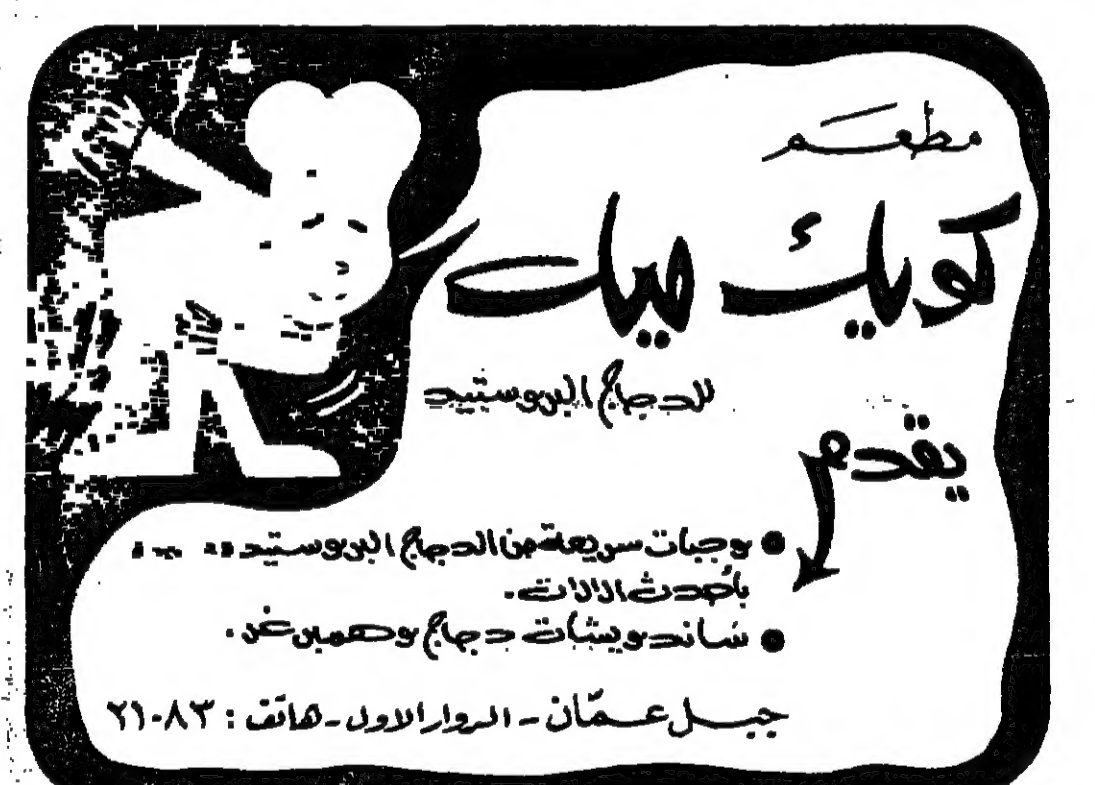 مطعم
كويك ميك
للدجاج البروستيد
يقدم
• وجبات سريعة من الدجاج البروستيد
بأحدث الالات.
• ساندويشات دجاج وهمبرغر.
جبل عمّان - الدوار الاول - هاتف : ٢١٠٨٣